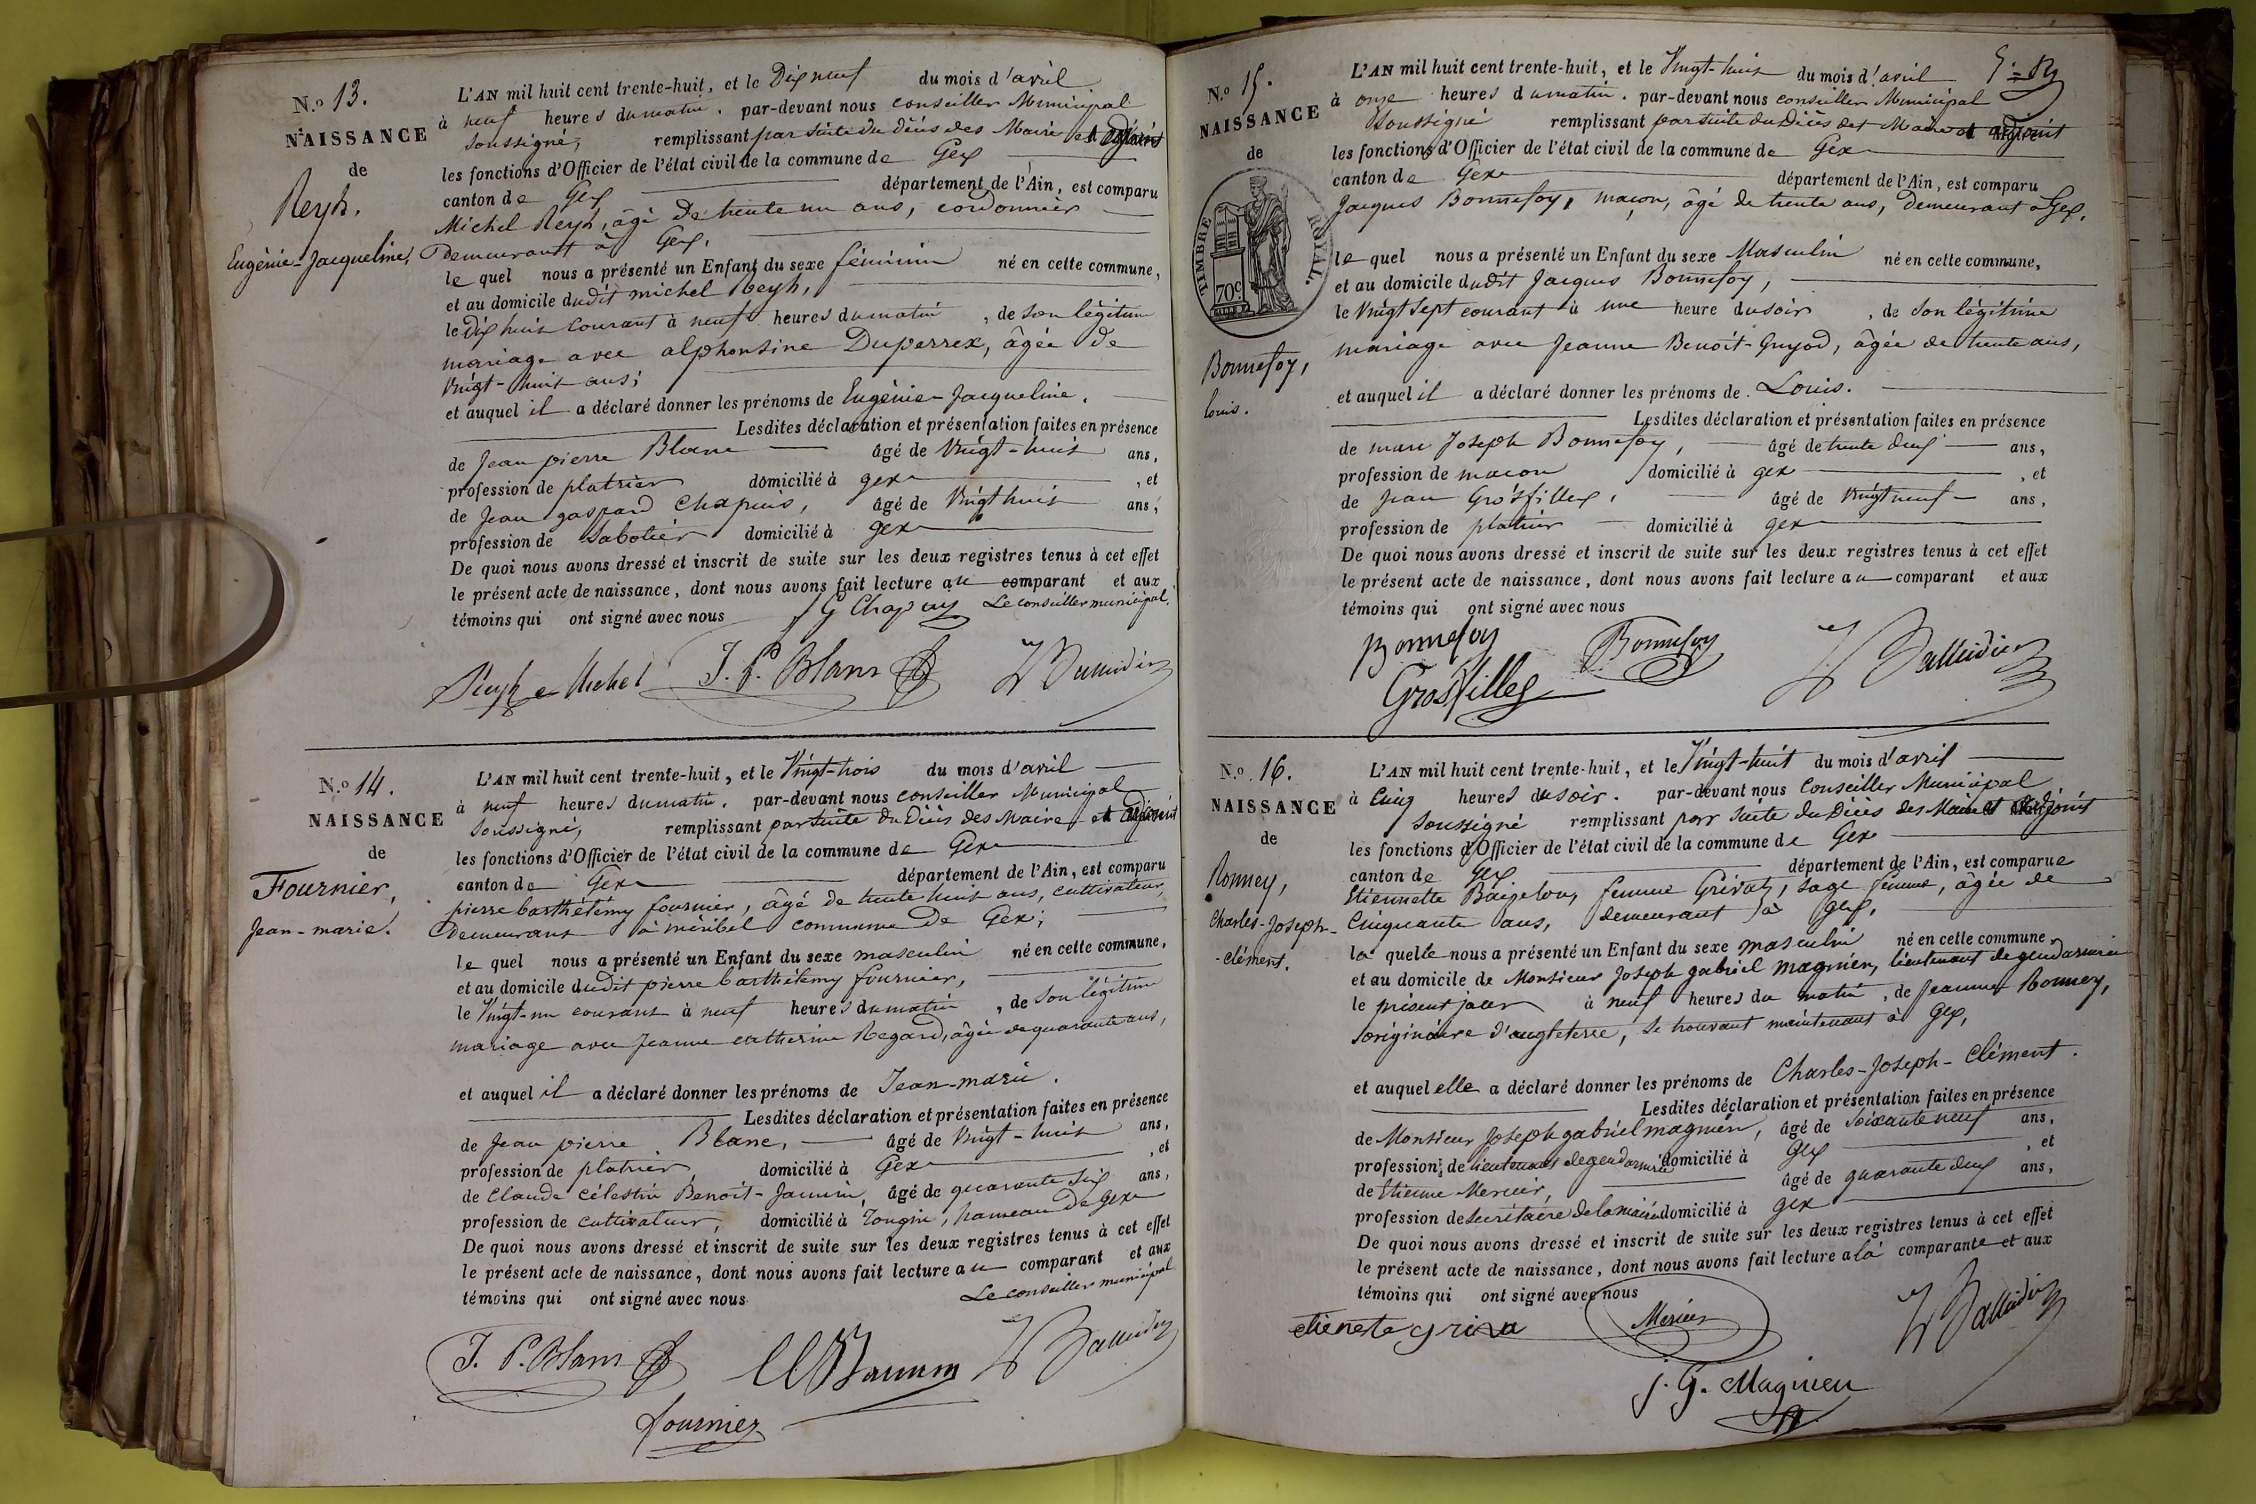 N.º 13.
NAISSANCE
de
Reyh.
Eugénie-Jacqueline.
L'AN mil huit cent trente-huit, et le Dix neuf du mois d'avril
à neuf heures du matin. par-devant nous conseiller Municipal
soussigné, remplissant par suite du décès des Maire et adjoint
les fonctions d'Officier de l'état civil de la commune de Gex
canton de Gex département de l'Ain, est comparu
Michel Reyh, âgé de trente un ans, cordonnier
demeurant à Gex,
le quel nous a présenté un Enfant du sexe féminin né en cette commune,
et au domicile dudit michel Reyh,
le dix huit courant à neuf heures du matin, de son légitime
mariage avec alphonsine Duperrex, âgée de
vingt-huit ans;
et auquel il a déclaré donner les prénoms de Eugénie-Jacqueline.
Lesdites déclaration et présentation faites en présence
de Jean pierre Blanc âgé de vingt-huit ans,
profession de platrier domicilié à gex, et
de Jean gaspard Chapuis, âgé de vingt huit ans,
profession de sabotier domicilié à gex
De quoi nous avons dressé et inscrit de suite sur les deux registres tenus à cet effet
le présent acte de naissance, dont nous avons fait lecture au comparant et aux
témoins qui ont signé avec nous
G Chapuy Le conseiller municipal.
Reyh Michel J. P. Blanc
N.º 14.
NAISSANCE
de
Fournier,
Jean-marie.
L'AN mil huit cent trente-huit, et le Vingt-trois du mois d'avril
à neuf heures du matin. par-devant nous conseiller Municipal
soussigné, remplissant par suite du Décès des Maire et adjoint
les fonctions d'Officier de l'état civil de la commune de Gex
canton de Gex département de l'Ain, est comparu
pierre barthélémy fournier, âgé de trente huit ans, cultivateur,
demeurant à miribel commune de Gex;
le quel nous a présenté un Enfant du sexe masculin né en cette commune,
et au domicile dudit pierre barthélemy fournier,
le Vingt-un courant à neuf heures du matin, de son légitime
mariage avec Jeanne catherine Regard, âgée de quarante ans,
et auquel il a déclaré donner les prénoms de Jean-marie.
Lesdites déclaration et présentation faites en présence
de Jean pierre Blanc, âgé de vingt-huit ans,
profession de platrier domicilié à Gex, et
de Claude célestin Benoit-Jannin, âgé de quarante six ans,
profession de cultivateur, domicilié à Tougin, hameau de Gex
De quoi nous avons dressé et inscrit de suite sur les deux registres tenus à cet effet
le présent acte de naissance, dont nous avons fait lecture au comparant et aux
témoins qui ont signé avec nous
Le conseiller municipal
J. P. Blanc
fournier
N.º 15.
NAISSANCE
de
TIMBRE ROYAL.
70c
Bonnefoy,
louis.
L'AN mil huit cent trente-huit, et le Vingt-huit du mois d'avril
à onze heures du matin. par-devant nous conseiller Municipal
soussigné remplissant par suite du Décès des Maire et adjoint
les fonctions d'Officier de l'état civil de la commune de Gex
canton de Gex département de l'Ain, est comparu
Jacques Bonnefoy, maçon, âgé de trente ans, demeurant à Gex,
le quel nous a présenté un Enfant du sexe Masculin né en cette commune,
et au domicile dudit Jacques Bonnefoy,
le Vingt sept courant à une heure du soir, de son légitime
mariage avec Jeanne Benoit-Guyod, âgée de trente ans,
et auquel il a déclaré donner les prénoms de Louis.
Lesdites déclaration et présentation faites en présence
de marc Joseph Bonnefoy, âgé de trente deux ans,
profession de macon domicilié à gex, et
de Jean Grosfillex, âgé de Vingt neuf ans,
profession de platrier domicilié à gex
De quoi nous avons dressé et inscrit de suite sur les deux registres tenus à cet effet
le présent acte de naissance, dont nous avons fait lecture au comparant et aux
témoins qui ont signé avec nous
Bonnefoy Bonnefoy
Grosfillex
N.º 16.
NAISSANCE
de
Ronney,
Charles-Joseph-
-clément.
L'AN mil huit cent trente-huit, et le Vingt-huit du mois d'avril
à Cinq heures du soir. par-devant nous Conseiller Municipal
soussigné remplissant par suite du Décès des Maire et adjoint
les fonctions d'Officier de l'état civil de la commune de Gex
canton de Gex département de l'Ain, est comparue
Etiennette Baigelon, femme Grivat, sage femme, âgée de
Cinquante ans, demeurant à Gex,
la quelle nous a présenté un Enfant du sexe masculin né en cette commune,
et au domicile de Monsieur Joseph gabriel magnien, lieutenant de gendarmerie
le présent jour à neuf heures du matin, de Jeanne Ronney,
originaire d'angleterre, se trouvant maintenant à Gex,
et auquel elle a déclaré donner les prénoms de Charles-Joseph-Clément.
Lesdites déclaration et présentation faites en présence
de Monsieur Joseph gabriel magnien, âgé de soixante neuf ans,
profession de lieutenant de gendarmerie domicilié à Gex, et
de Etienne Mercier, âgé de quarante deux ans,
profession de secrétaire de la mairie domicilié à gex
De quoi nous avons dressé et inscrit de suite sur les deux registres tenus à cet effet
le présent acte de naissance, dont nous avons fait lecture a la comparante et aux
témoins qui ont signé avec nous
etienete griva Mercier
J. G. Magnien